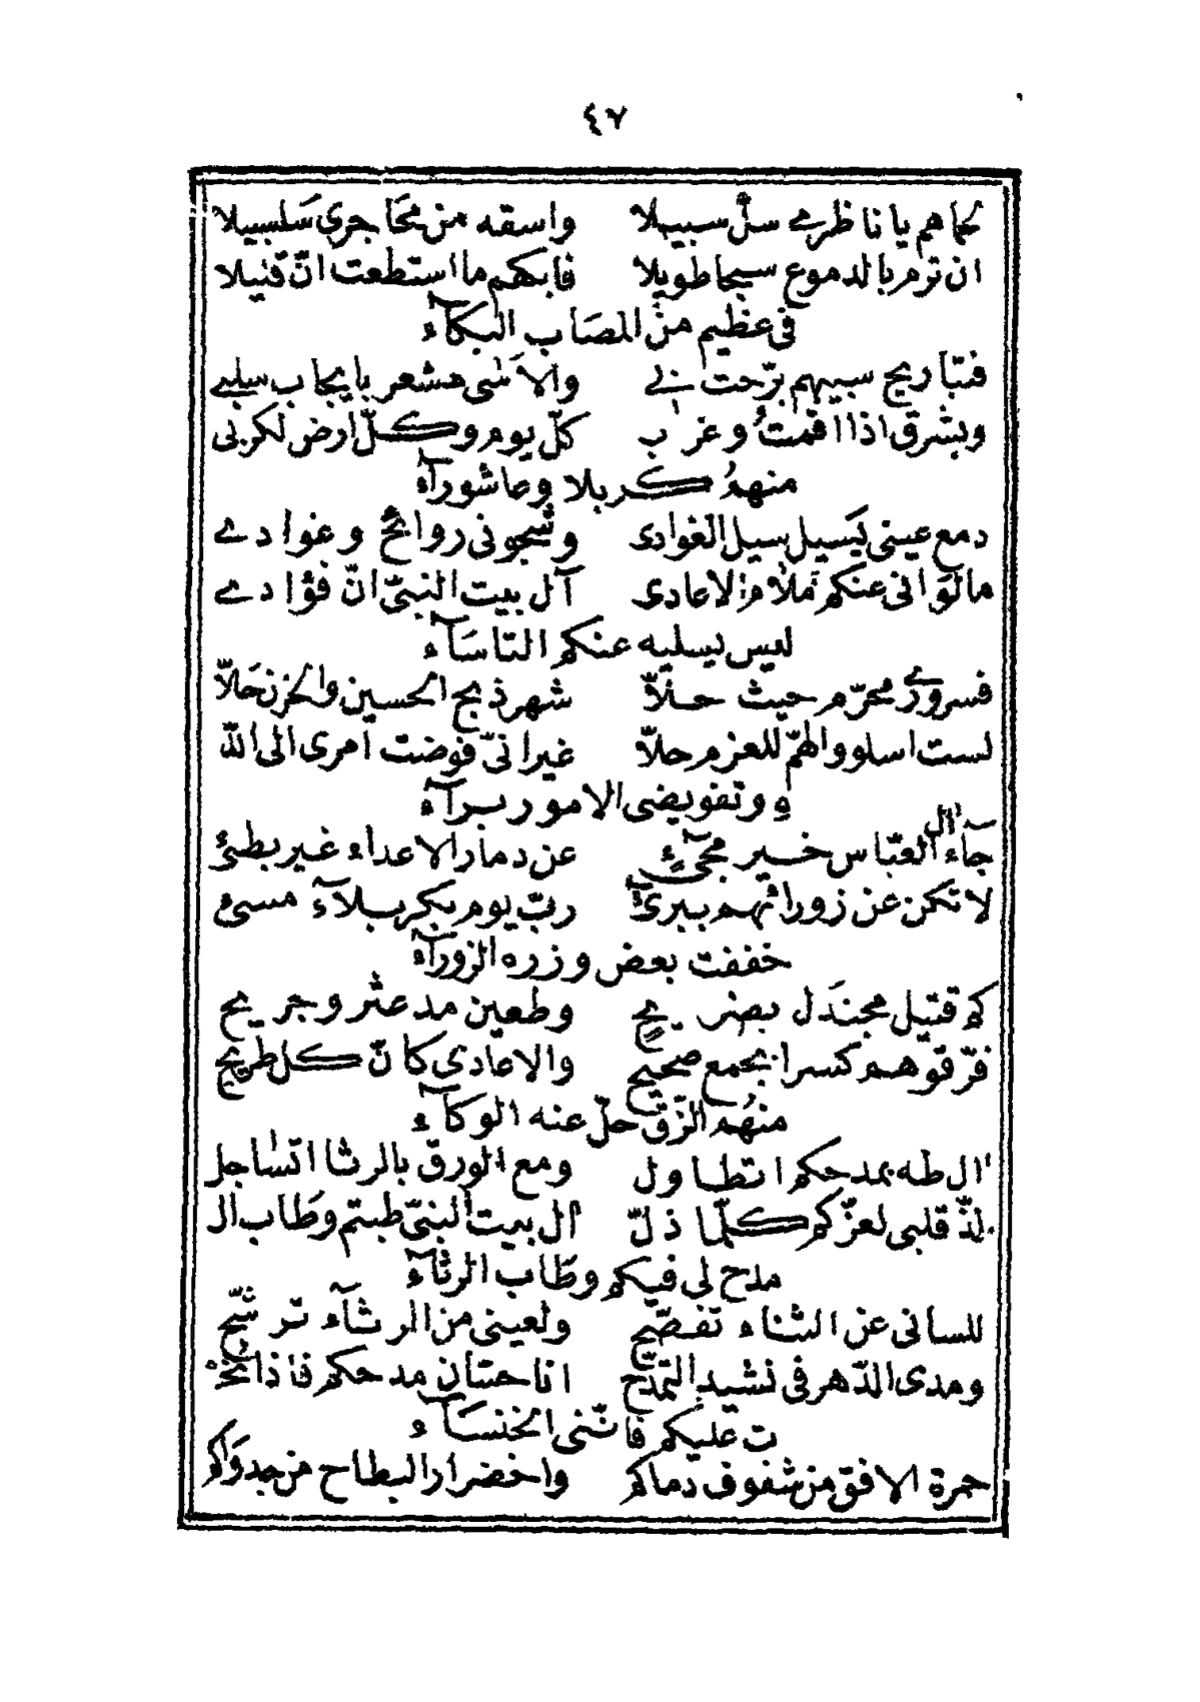 ٤٧
لحماهم يا ناظري سل سبيلا واسقه من محاجري سلسبيلا
ان ترم بالدموع سيحا طويلا فابكهم ما استطعت ان قليلا
في عظيم من المصاب البكآء
فتباريح سبيهم برّحت بي والأسى مشعر بايجاب سلبي
وبشرق اذا اقمت وغرب كلّ يوم وكلّ ارض لكربي
منهم كربلا وعاشورآء
دمع عيني يسيل سيل الغوادى وشجوني روائح وغوادي
مالوانى عنكم ملام الاعادى آل بيت النبيّ انّ فؤادي
ليس يسليه عنكم التاسآء
فسروري محرّم حيث حلاّ شهر ذبح الحسين والحزن حلاّ
لست اسلو والهمّ للعزم حلاّ غير انيّ فوضت امرى الى اللّه
ه وتفويضى الامور برآء
جآء آل العبّاس خير مجئٍ عن دمار الاعداء غير بطئ
لا تكن عن زورائهم ببرئ ربّ يوم بكربلآء مسئ
خففت بعض وزره الزورآء
كم قتيل مجندل بضريح وطعين مدعثر وجريح
فرّقوهم كسرا بجمع صحيح والاعادى كانّ كل طريح
منهم الزّق حلّ عنه الوكآء
ال طه بمدحكم اتطاول ومع الورق بالرثا اتساجل
لذّ قلبى لعزّكم كلّما ذلّ ال بيت النبيّ طبتم وطاب ال
مدح لى فيكم وطاب الرثآء
للسانى عن الثناء تفصّح ولعينى من الرثآء ترشّح
ومدى الدّهر فى نشيد التمدّح انا حسّان مدحكم فاذا نحْ
ت عليكم فانّنى الخنسآء
حمرة الافق من شفوف دماكم واخضرار البطاح من جدواكم